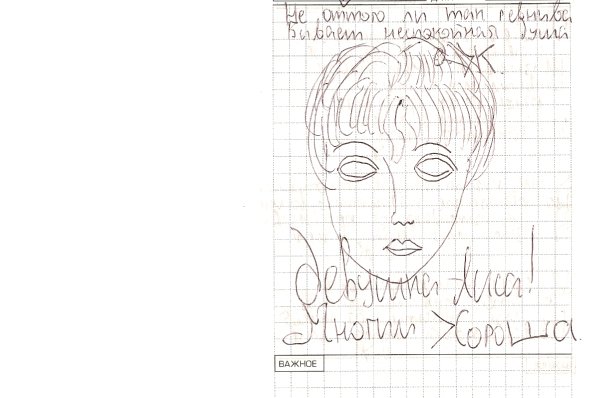 Не оттого ли так ревнива
Бывает неспокойная душа
Девушка-Лиса!
Многим хороша.
ВАЖНОЕ